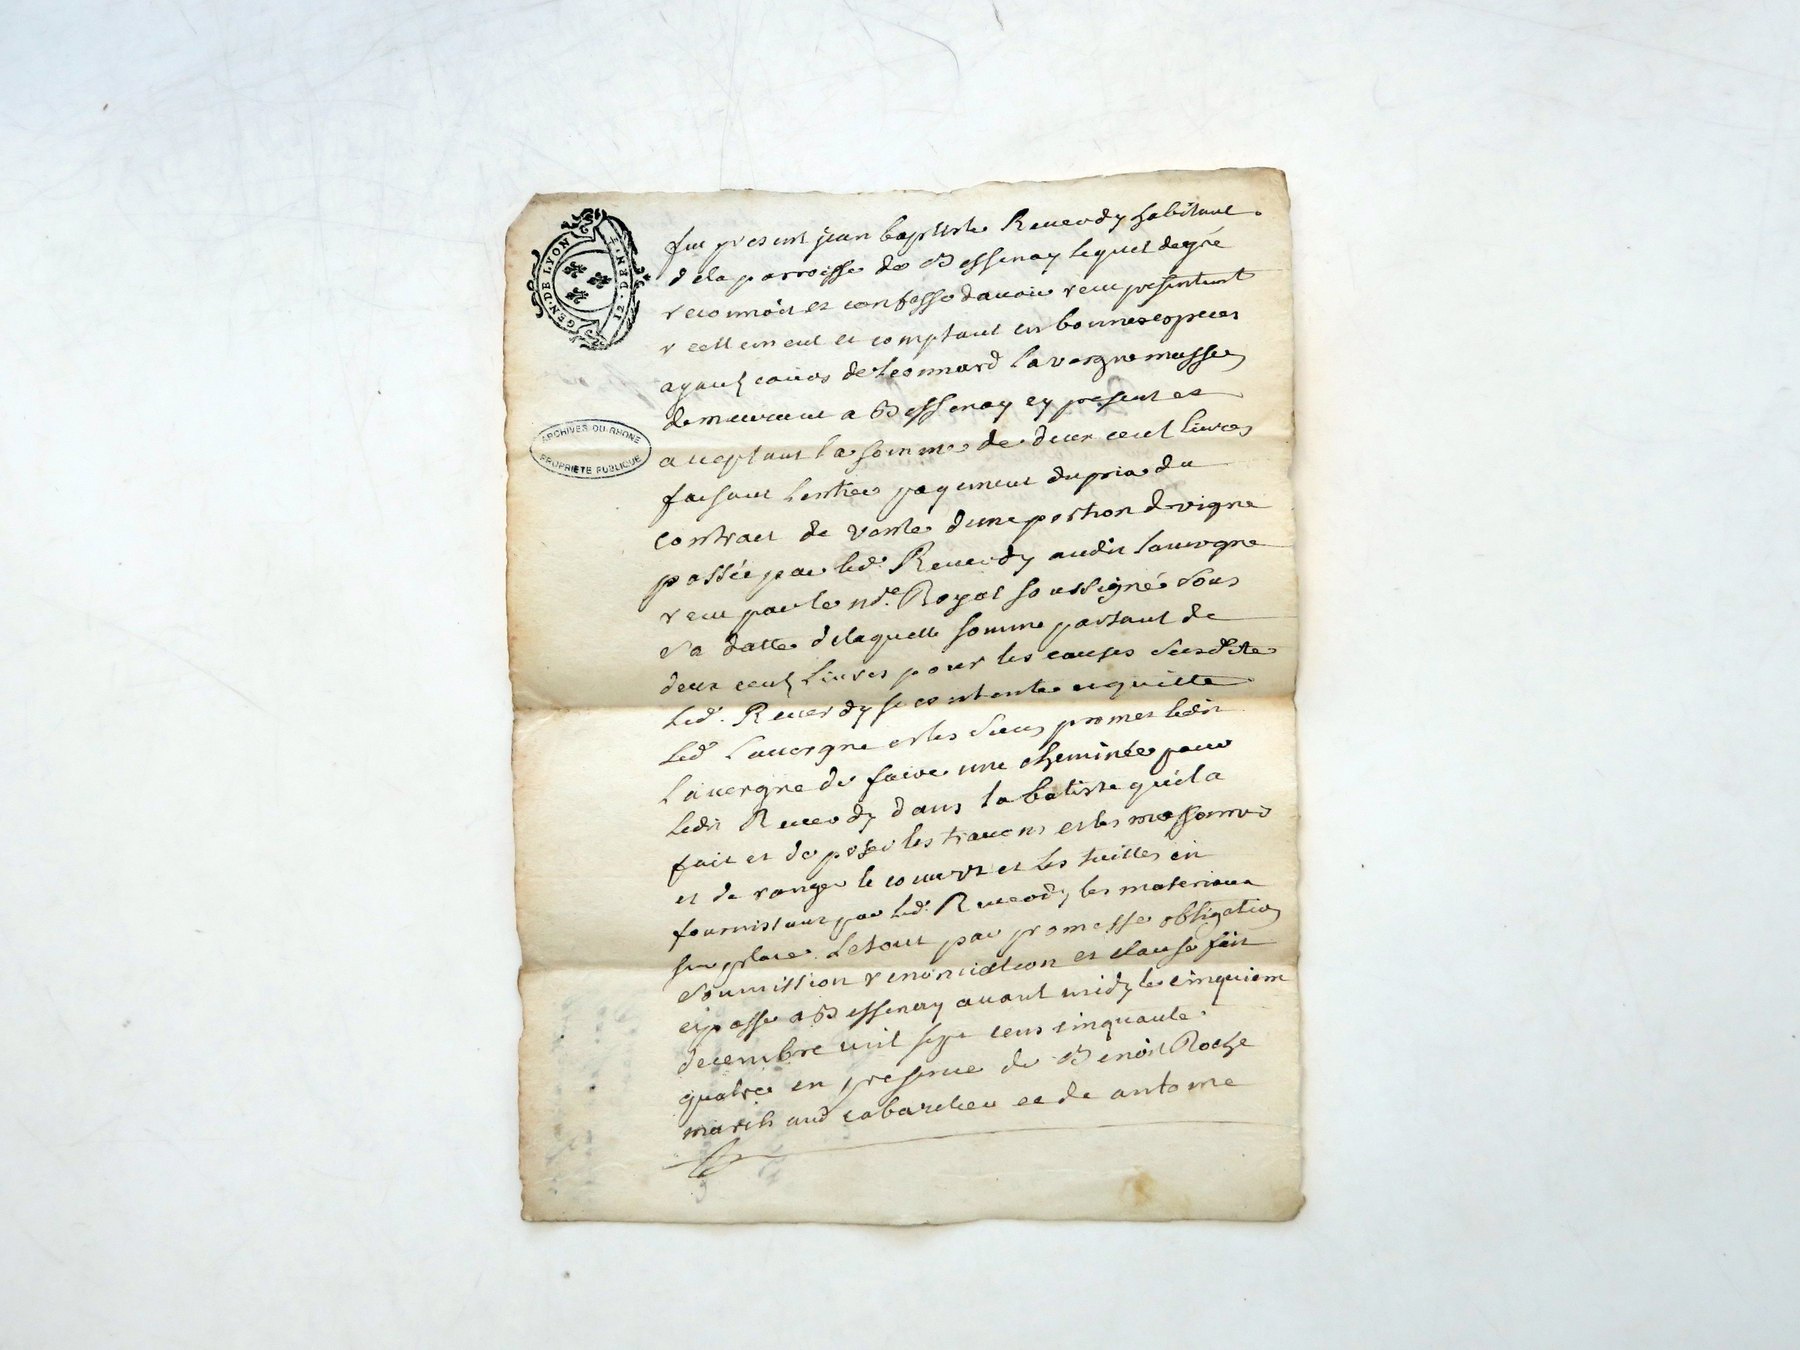 GEN. DE LYON
12. DEN. 4.
ARCHIVES DU RHONE
PROPRIETE PUBLIQUE
fut present jean baptiste Reverdy habitant
dela parroisse de Bessenay lequel de gré
reconnoit et confesse davoir receu presentement
reellement et comptant en bonnes especes
ayant cours de Leonnard Lavergne masson
demeurant a Bessenay cy present et
acceptant la somme de deux cent livres
faisant lentier payement du prix du
contract de vente dune portion de vigne
passée par led. Reverdy audit Lauvergne
receu par le nd.e Royal soussigné sous
sa datte delaquelle somme partant de
deux cents livres pour les causes susdite
led. Reverdy se contente et quitte
led. Lauvergne et les siens promet ledit
Lauvergne de faire une cheminée pour
ledit Reverdy dans la batisse quil a
fait et de poser les travons et les
et de ranger le couvert et les tuilles en
fournissant par led. Reverdy les materiaux
sur place. Le tout par promesse obligation
soumission renonciation et clause fait
et passé a Bessenay avant midy le cinquiem
decembre mil sept cens cinquante
quatre en presence de Benoit Roche
march and cabaretier et de antoine